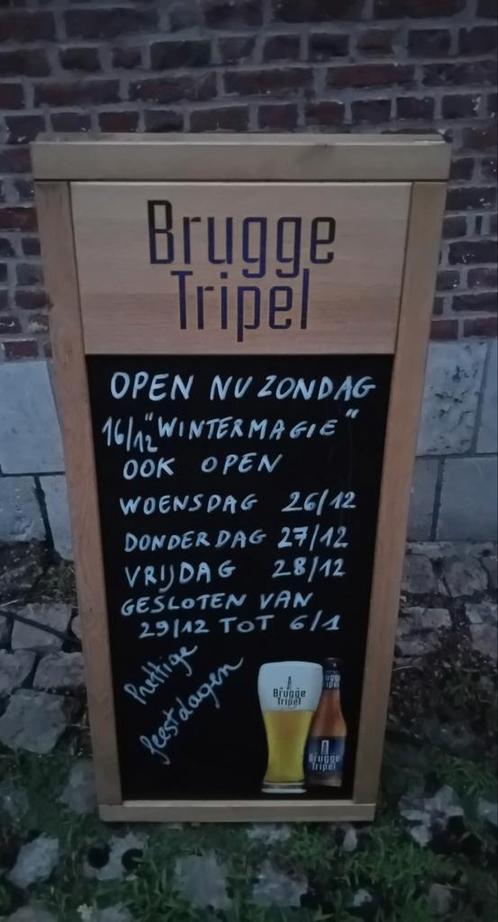 Brugge
Tripel
OPEN NU ZONDAG
16/12 "WINTERMAGIE"
OOK OPEN
WOENSDAG 26/12
DONDERDAG 27/12
VRIJDAG 28/12
GESLOTEN VAN
29/12 TOT 6/1
Prettige
feestdagen
Brugge
Tripel
Brugge
Tripel